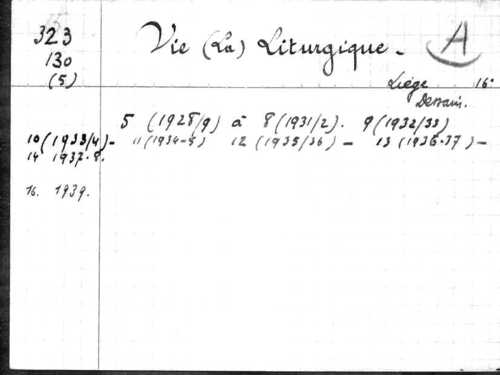 323
130
(5)
Vie (La) Liturgique.
A
Liège 16°
Dessain.
5 (1928/9) à 8 (1931/2). 9 (1932/33)
10 (1933/4) - 11 (1934-5) 12 (1935/36) - 13 (1936-37) -
14 1937-8.
16. 1939.